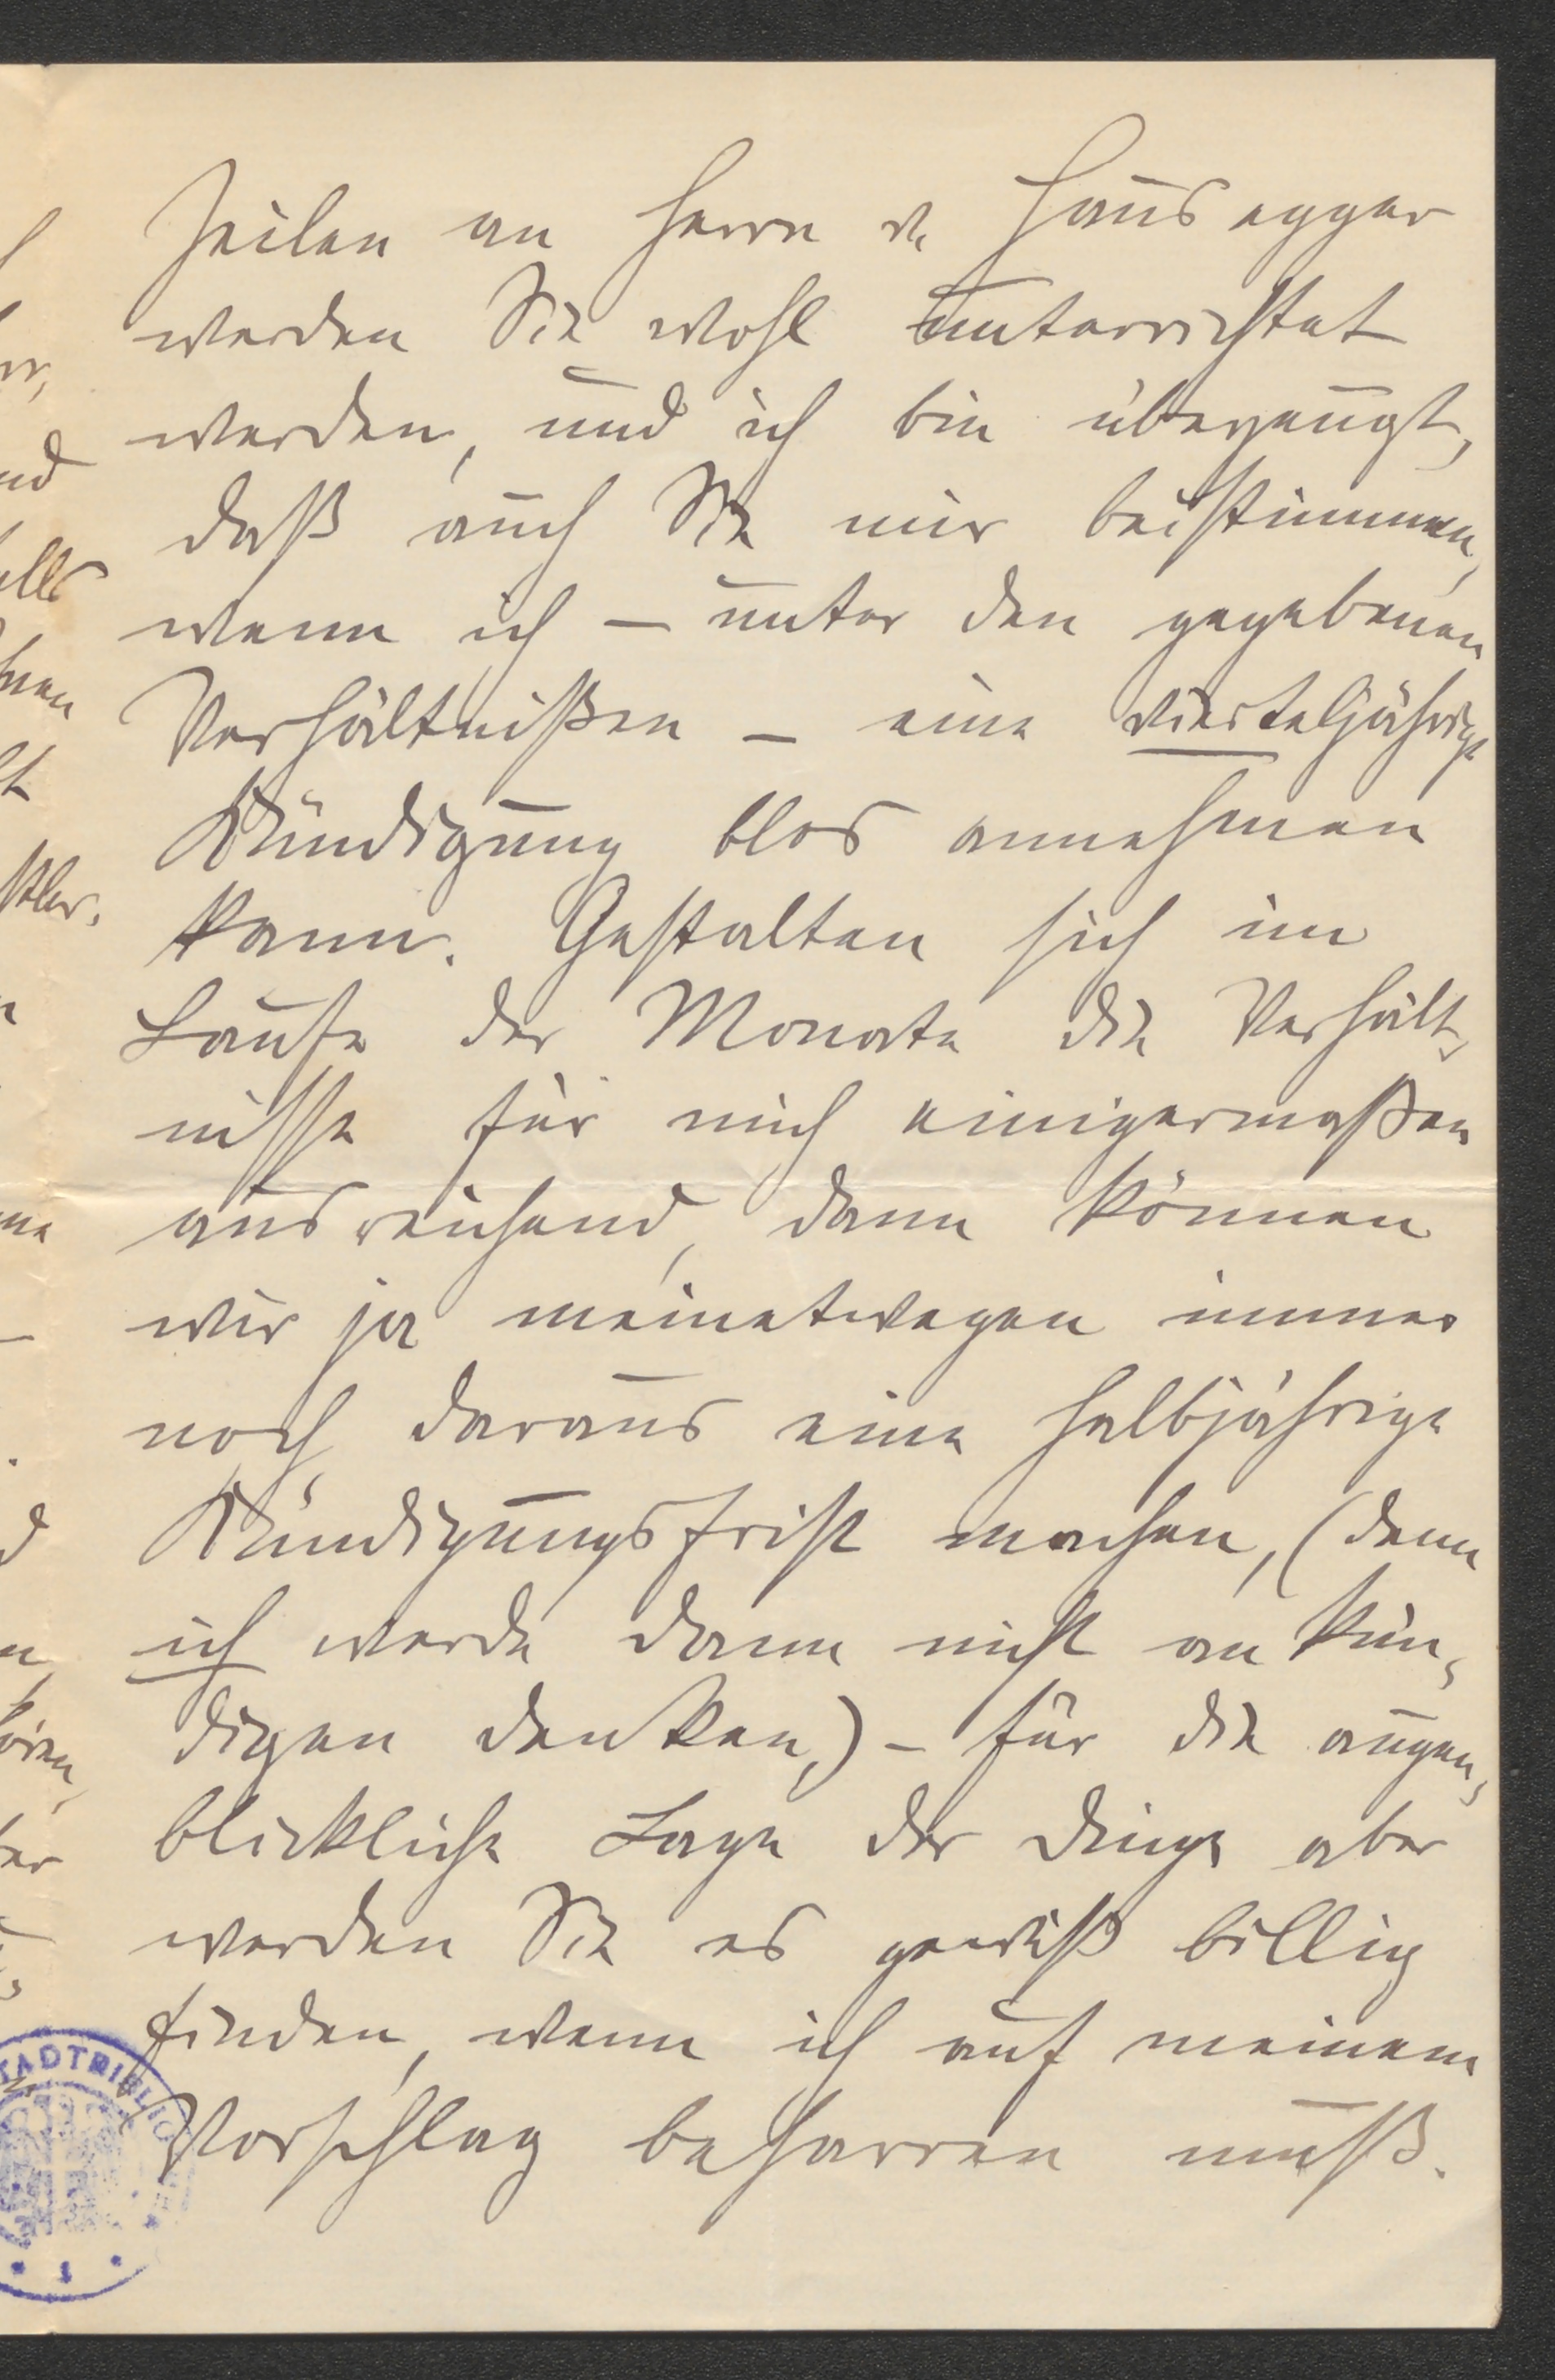 Zeilen an Herrn v. Hausegger
werden Sie wohl unterrichtet
werden, und ich bin überzeugt,
daß auch Sie mir beistimmen,
wenn ich – unter den gegebenen
Verhältnißen – eine vierteljährige
Kündigung blos annehmen
kann. Gestalten sich im
Laufe der Monate die Verhält-
nisse für mich einigermaßen
ausreichend, dann können
wir ja meinetwegen immer
noch daraus eine halbjährige
Kündigungsfrist machen, (denn
ich werde dann nicht an kün-
digen denken,) – für die augen-
blickliche Lage der Dinge aber
werden Sie es gewiß billig
finden, wenn ich auf meinem
Vorschlag beharren muß.
STADTBIBLIO